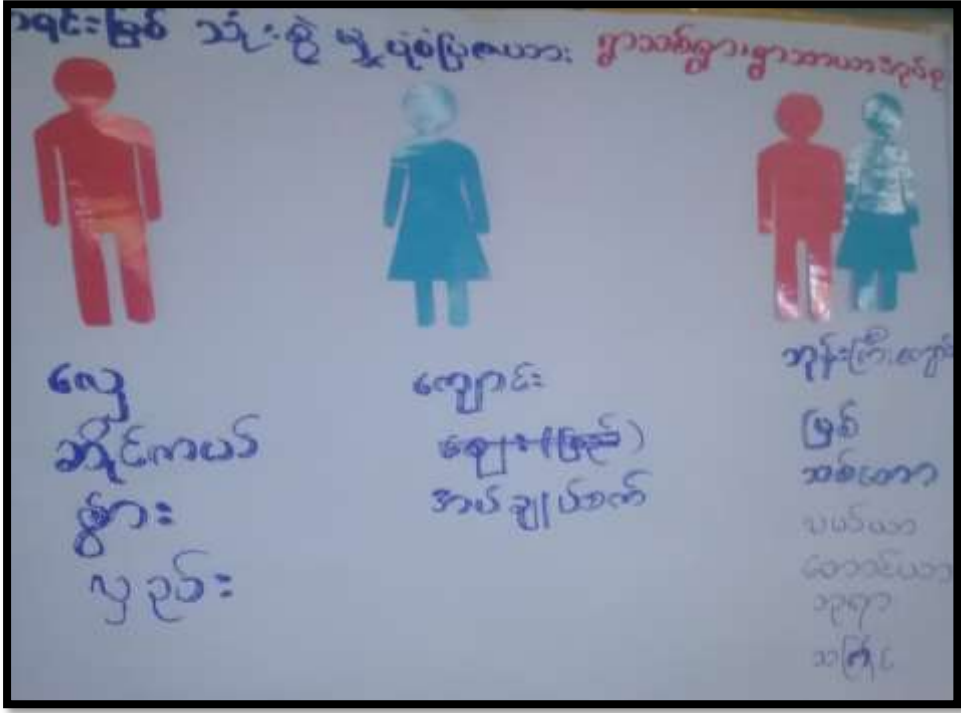 အရင်းမြစ် သုံးစွဲမှု ပုံစံပြဇယား ရွာသစ်ရွာ၊ ရွာသာယာအုပ်စု
လှေ
ဆိုင်ကယ်
နွား
လှည်း
ကျောင်း
ဈေး (မြည်)
အပ်ချုပ်စက်
ဘုန်းကြီးကျောင်း
မြစ်
သစ်တော
လယ်ယာ
တောင်ယာ
ဘုရာ
သင်္ချိုင်း